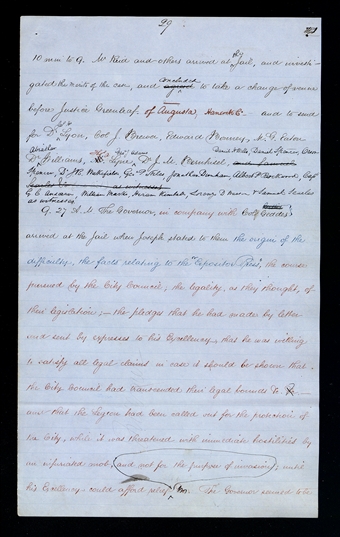 29
10 min to 9. Mr Reid and others arrived at Jail, and investi-
gated the merits of the case, and concluded to take a change of venue
before Justice Greenleaf of Augusta, Hancock Co and to send
for Dr Lyon, Col J Brewer, Edward Bonney, M. G. Eaton
Williams, Dr J. M. Bernhisel,
Daniel Spencer, Orson
Spencer, Dr Jonathan Dunham, Albert P. Rockwood, Capt
C. C. Anderson, William Marks, Hiram Kimball, Lorenzo D Wasson & Samuel Searles
as witnesses
9. 27 A.M. The Governor, in company with Col Geddes
arrived at the jail when Joseph stated to them the origin of the
difficulty, the facts relating to the "Expositor Press", the course
pursued by the City Council; the legality, as they thought, of
their legislation; — the pledges that he had made by letter
and sent by expresses to his Excellency, that he was willing
to satisfy all legal claims in case it should be shown that
the City Council had transcended their legal bounds &
and that the Legion had been called out for the protection of
the City, while it was threatened with immediate hostilities by
an infuriated mob, and not for the purpose of invasion; until
his Excellency could afford relief &c. The Governor seemed to be